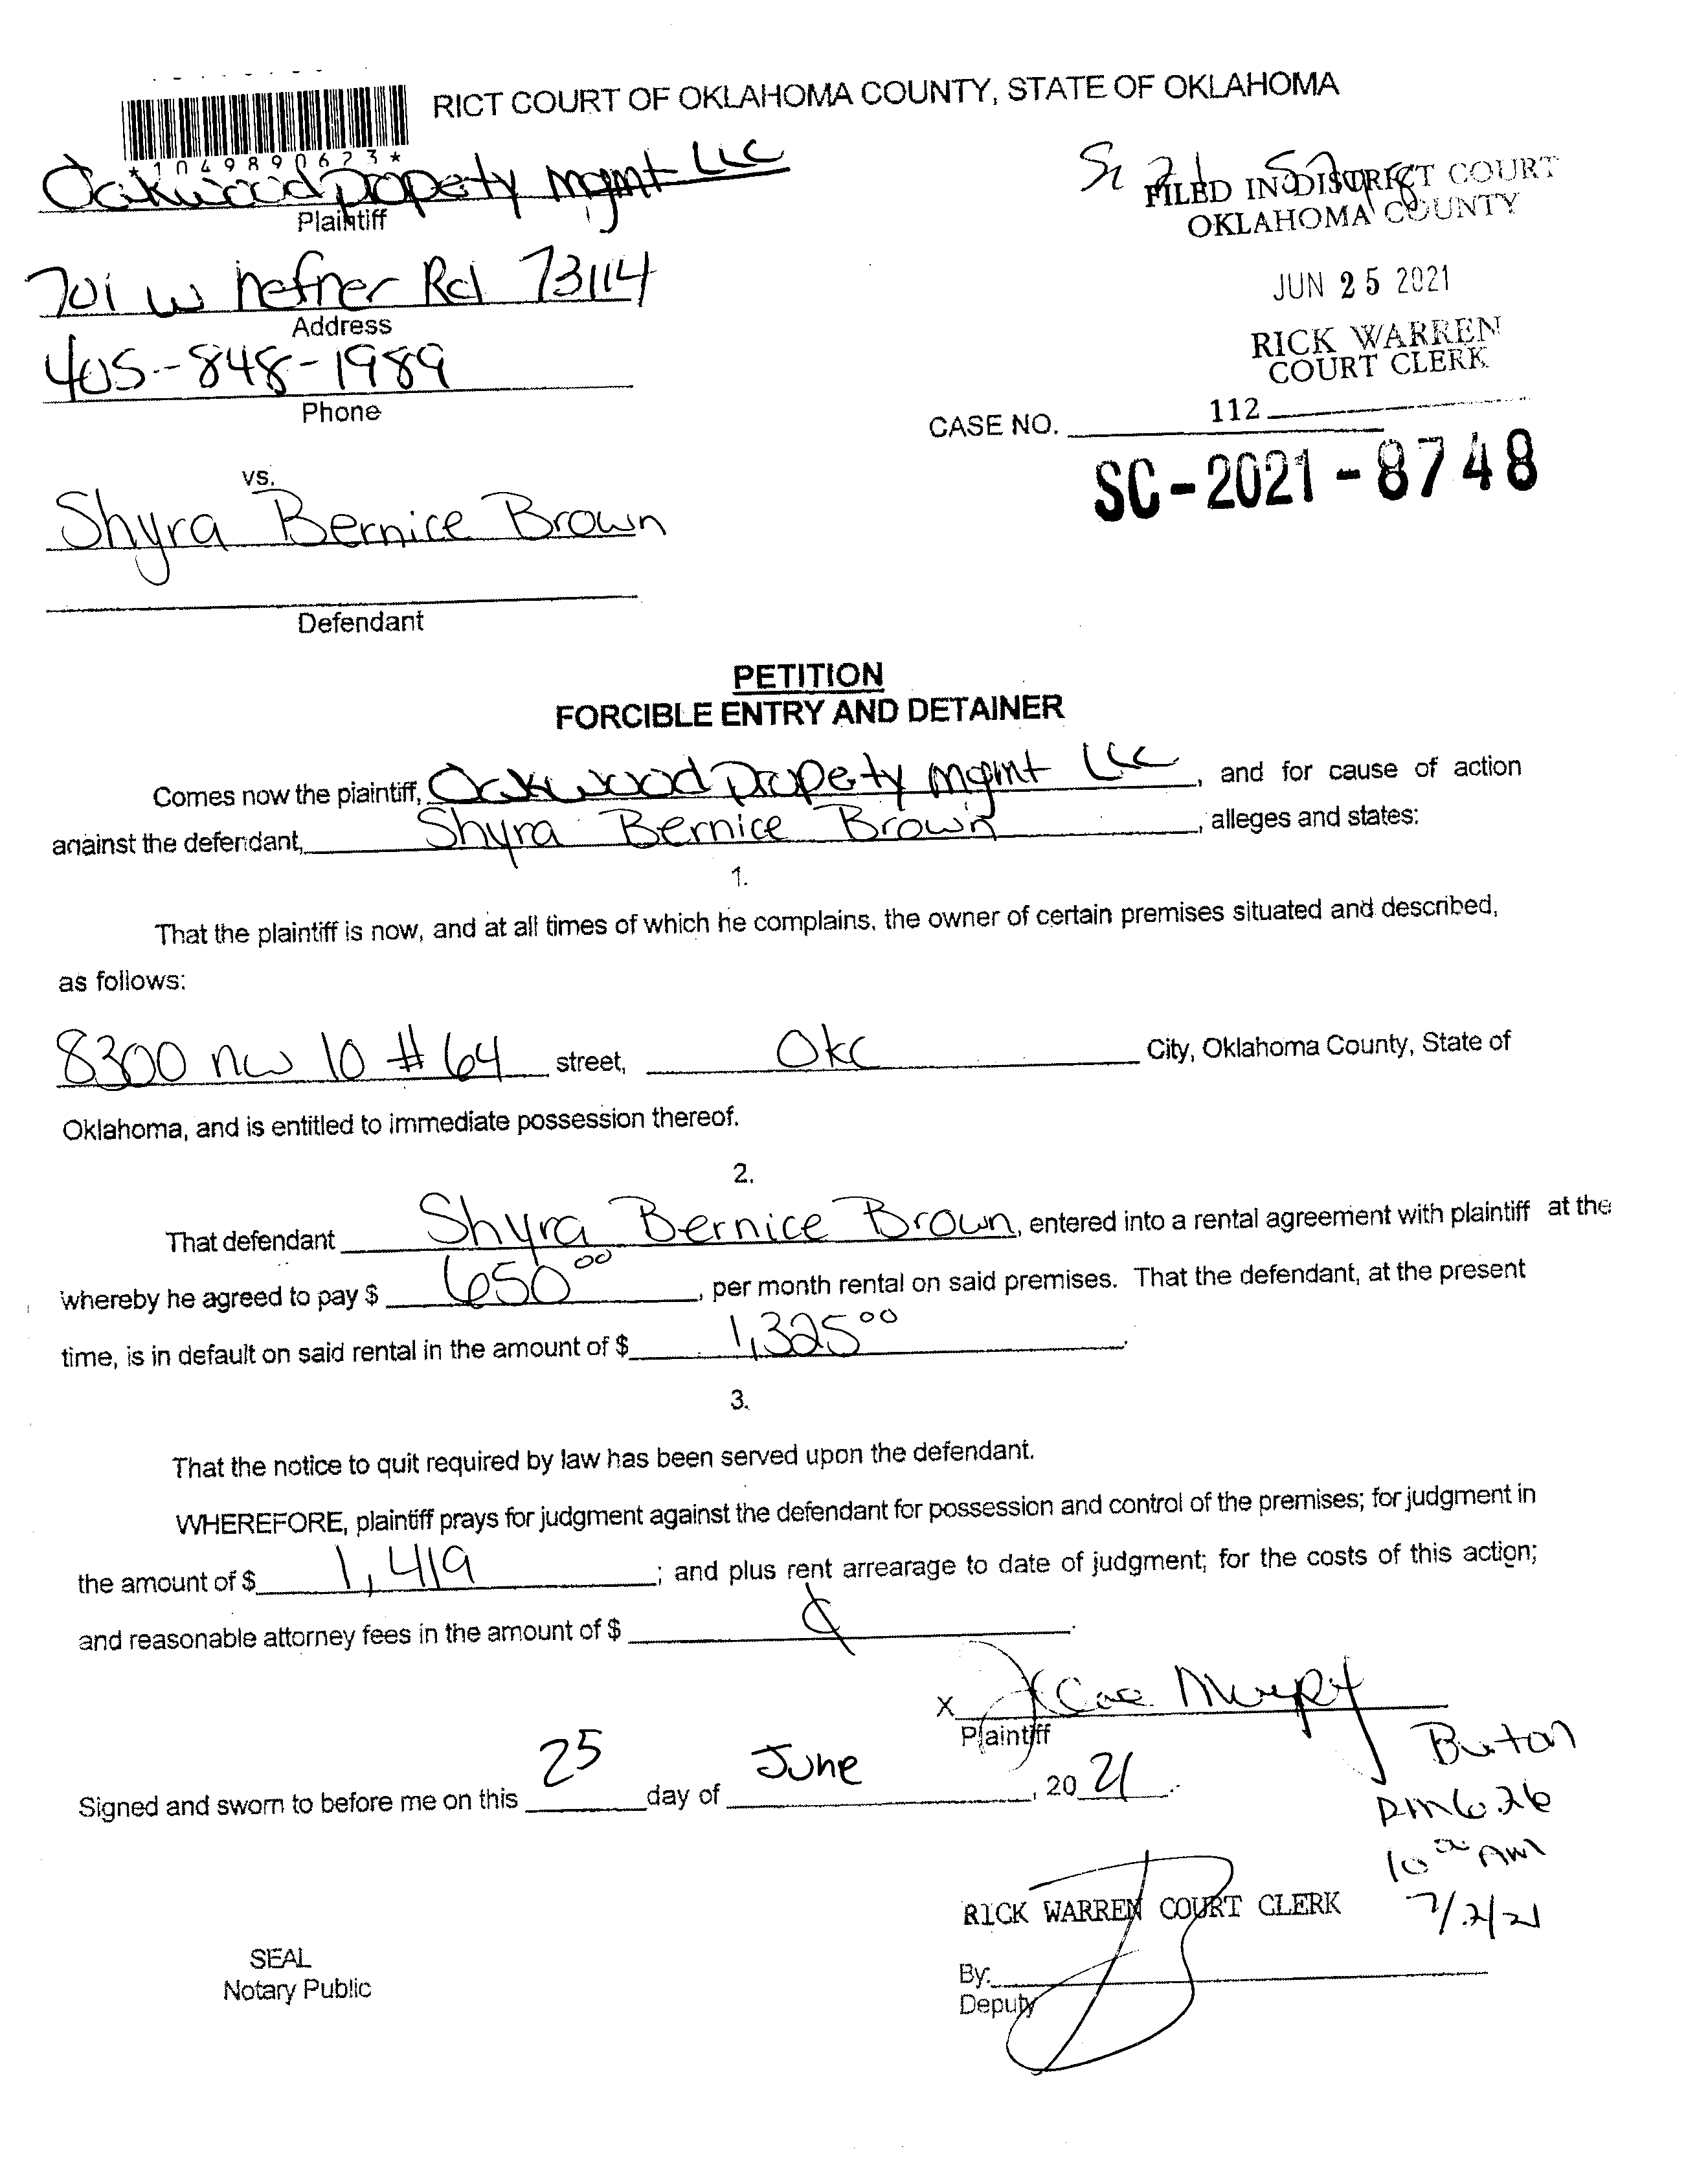 RICT COURT OF OKLAHOMA COUNTY, STATE OF OKLAHOMA
*1049890623*
Oakwood Property mgmt LLC
Plaintiff
FILED IN DISTRICT COURT
OKLAHOMA COUNTY
701 W hefner Rd 73114
Address
JUN 25 2021
405-848-1989
Phone
RICK WARREN
COURT CLERK
112
CASE NO.
SC-2021-8748
vs.
Shyra Bernice Brown
Defendant
PETITION
FORCIBLE ENTRY AND DETAINER
Comes now the plaintiff, Oakwood Property mgmt LLC, and for cause of action
against the defendant, Shyra Bernice Brown, alleges and states:
1.
That the plaintiff is now, and at all times of which he complains, the owner of certain premises situated and described,
as follows:
8300 nw 10 # 64 street, Okc City, Oklahoma County, State of
Oklahoma, and is entitled to immediate possession thereof.
2.
That defendant Shyra Bernice Brown, entered into a rental agreement with plaintiff at the
whereby he agreed to pay $ 650.00, per month rental on said premises. That the defendant, at the present
time, is in default on said rental in the amount of $ 1,325.00.
3.
That the notice to quit required by law has been served upon the defendant.
WHEREFORE, plaintiff prays for judgment against the defendant for possession and control of the premises; for judgment in
the amount of $ 1,419; and plus rent arrearage to date of judgment; for the costs of this action;
and reasonable attorney fees in the amount of $
X
Plaintiff
Signed and sworn to before me on this 25 day of June, 20 21.
10 00 AM
7/2/21
RICK WARREN COURT CLERK
SEAL
Notary Public
By:
Deputy